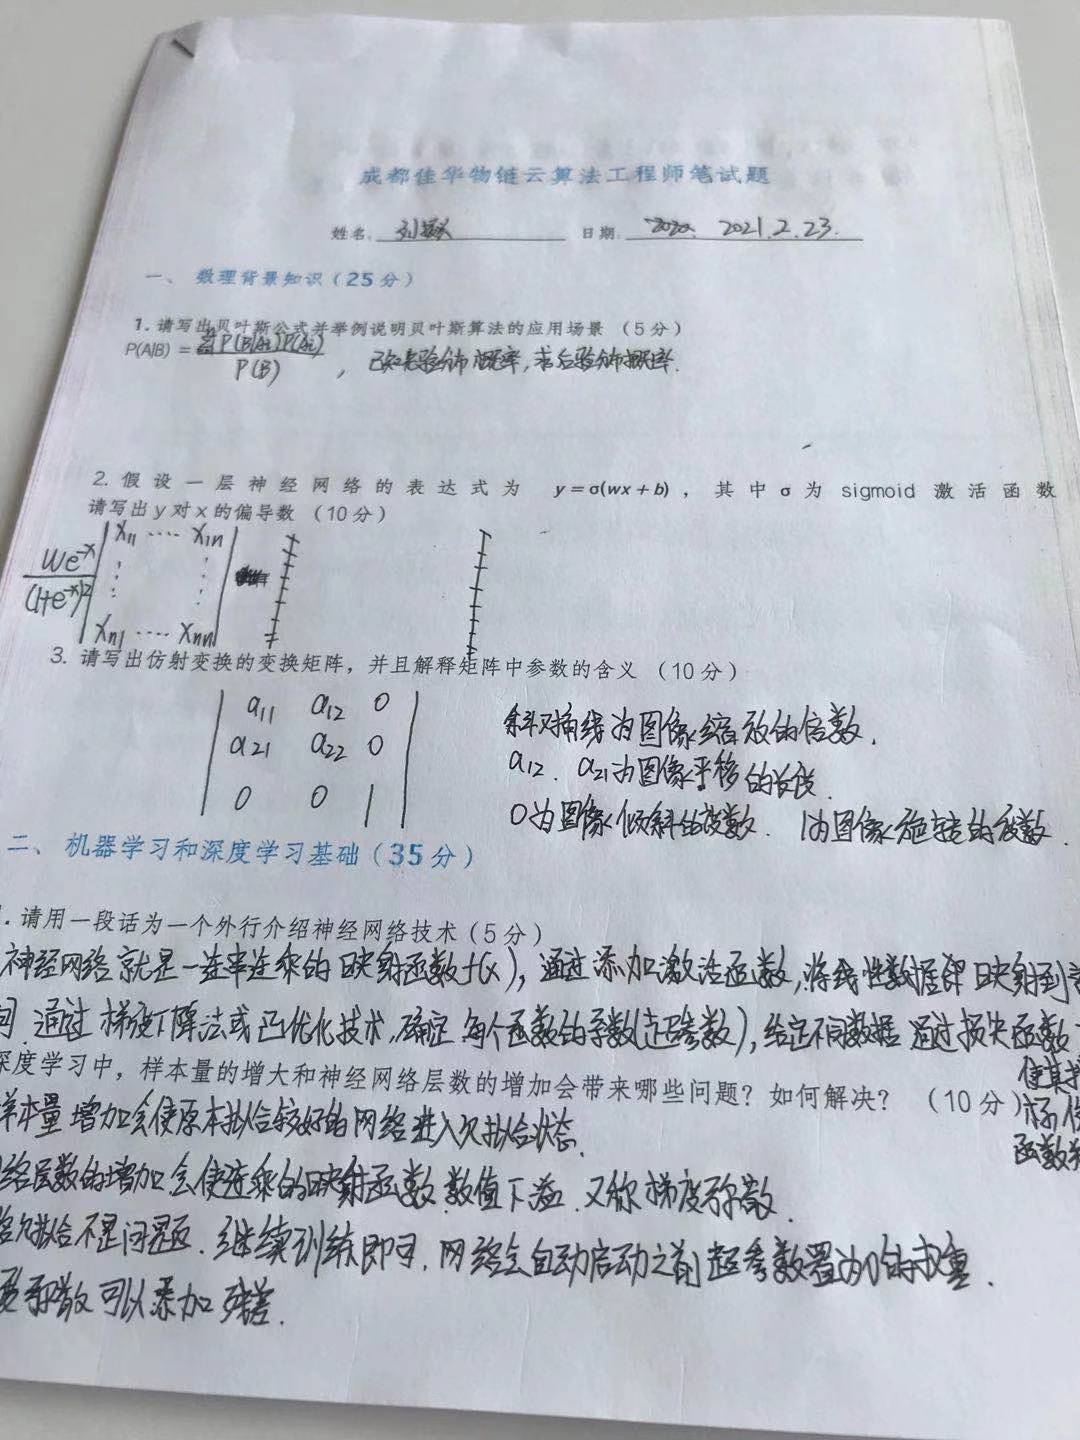 成都佳华物链云算法工程师笔试题
姓名: 日期: 2020. 2021.2.23.
一、 数理背景知识(25分)
1.请写出贝叶斯公式并举例说明贝叶斯算法的应用场景 (5分)
P(A|B) = P(B|Ai)P(Ai)
P(B) , 已知先验分布概率,求后验分布概率.
2. 假设一层神经网络的表达式为 y=σ(wx+b) , 其中σ为 sigmoid 激活函数
请写出y对x的偏导数 (10分)
We^-x
(1+e^-x)^2
X11 ···· X1n
Xn1 ···· Xnn
3. 请写出仿射变换的变换矩阵,并且解释矩阵中参数的含义 (10分)
a11 a12 0
a21 a22 0
0 0 1
斜对角线为图像缩放的倍数.
a12. a21为图像平移的长度.
0为图像倾斜的度数. 1为图像旋转的度数.
二、 机器学习和深度学习基础(35分)
.请用一段话为一个外行介绍神经网络技术(5分)
神经网络就是一连串连乘的映射函数f(x), 通过添加激活函数,将线性数据 映射到
间. 通过梯度下降法或凸优化技术,确定每个函数的系数(超参数), 给定不同数据 通过损失函数
深度学习中, 样本量的增大和神经网络层数的增加会带来哪些问题? 如何解决? (10分)
使其
样本量增加会使原本拟合较好的网络进入欠拟合状态.
函数
络层数的增加会使连乘的映射函数数值下溢. 又称梯度弥散.
欠拟合不是问题. 继续训练即可. 网络会自动启动之前超参数置为0的权重.
弥散可以添加残差.